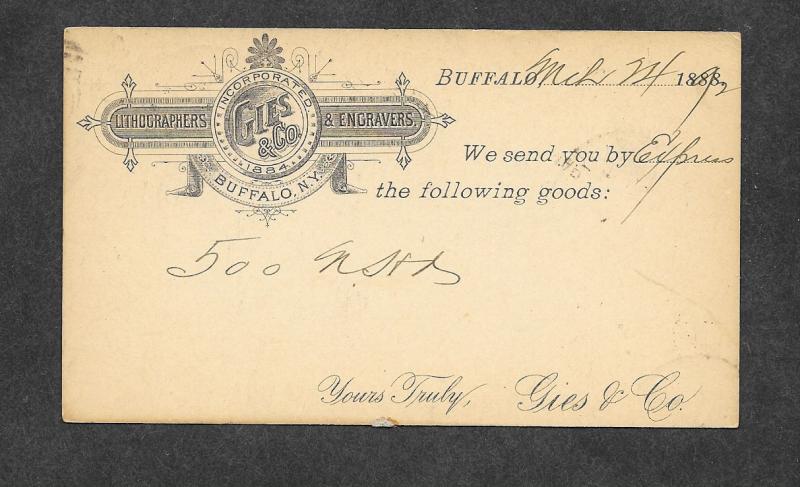 INCORPORATED
LITHOGRAPHERS GIES & CO. & ENGRAVERS.
1884
BUFFALO, N.Y.
BUFFALO, Mch 24 1888, 92
We send you by Express
the following goods:
500 N Hds
Yours Truly, Gies & Co.